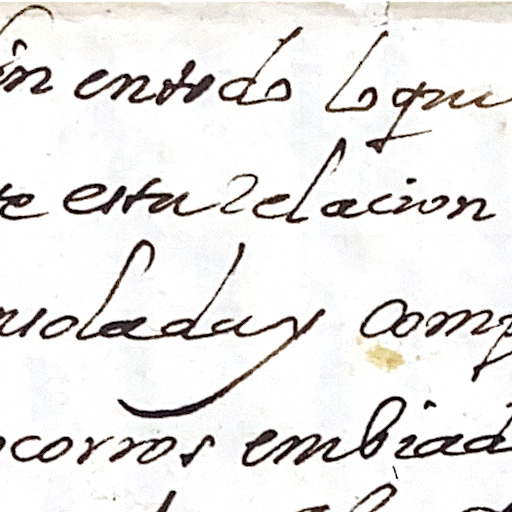 in en todo lo que
te esta relacion
solada y comp
ocorros embiad